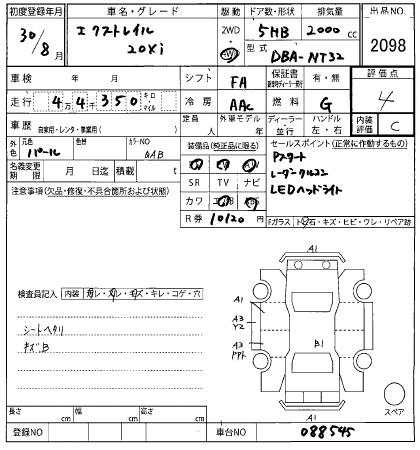 初度登録年月 車名・グレード 駆動 ドア数・形状 排気量 出品NO.
30/8月 エクストレイル 20Xi 2WD 4WD 5HB 2000cc 2098
型式 DBA-NT32
車検 年 月 シフト FA 保証書 有・無 評価点
走行 44千350 キロ・マイル 冷房 AAC 燃料 G 4
車歴 自家用・レンタ・事業用( ) 定員 人 外車モデル 年 ディーラー 並行 ハンドル 左・右 内装評価 C
外色 元色 パール 色替 カラーNO QAB
装備品(純正品に限る) セールスポイント(正常に作動するもの)
名義変更期限 月 日迄 積載 t
SR TV ナビ
Pスタート
レーダークルコン
LEDヘッドライト
注意事項(欠品・修復・不具合箇所および状態)
カワ
R券 10120円
Fガラス トビ石・キズ・ヒビ・ワレ・リペア跡
A1
検査員記入 内装 ヨゴレ・スレ・キズ・キレ・コゲ・穴
A1
A3
Y2
シートヘタリ
A3
B1
キズB
A1
スペア
長さ cm 幅 cm 高さ cm
登録NO 車台NO 088545